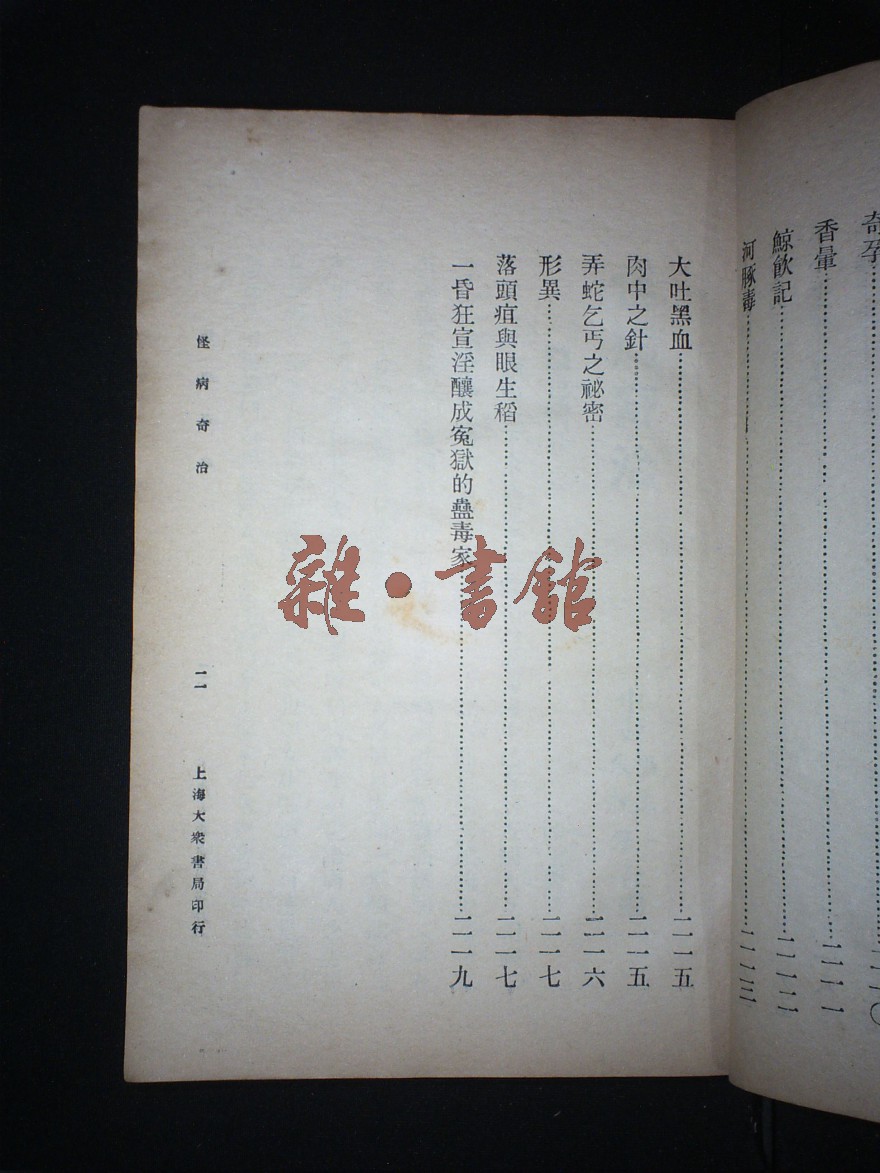 奇孕……二一〇
香暈……二一一
鯨飲記……二一二
河豚毒……二一三
大吐黑血……二一五
肉中之針……二一五
弄蛇乞丐之祕密……二一六
形異……二一七
落頭疽與眼生稻……二一七
一昏狂宣淫釀成冤獄的蠱毒家……二一九
怪病奇治 一一 上海大衆書局印行
雜·書館